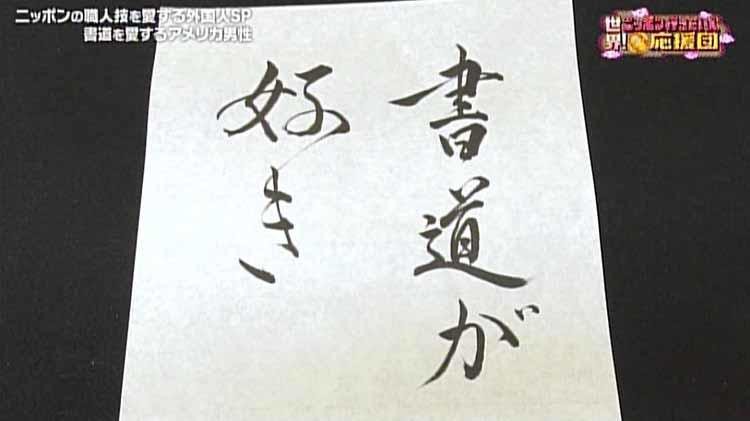 ニッポンの職人技を愛する外国人SP
書道を愛するアメリカ男性
世界!
ニッポン行きたい人
応援団
書道が
好き